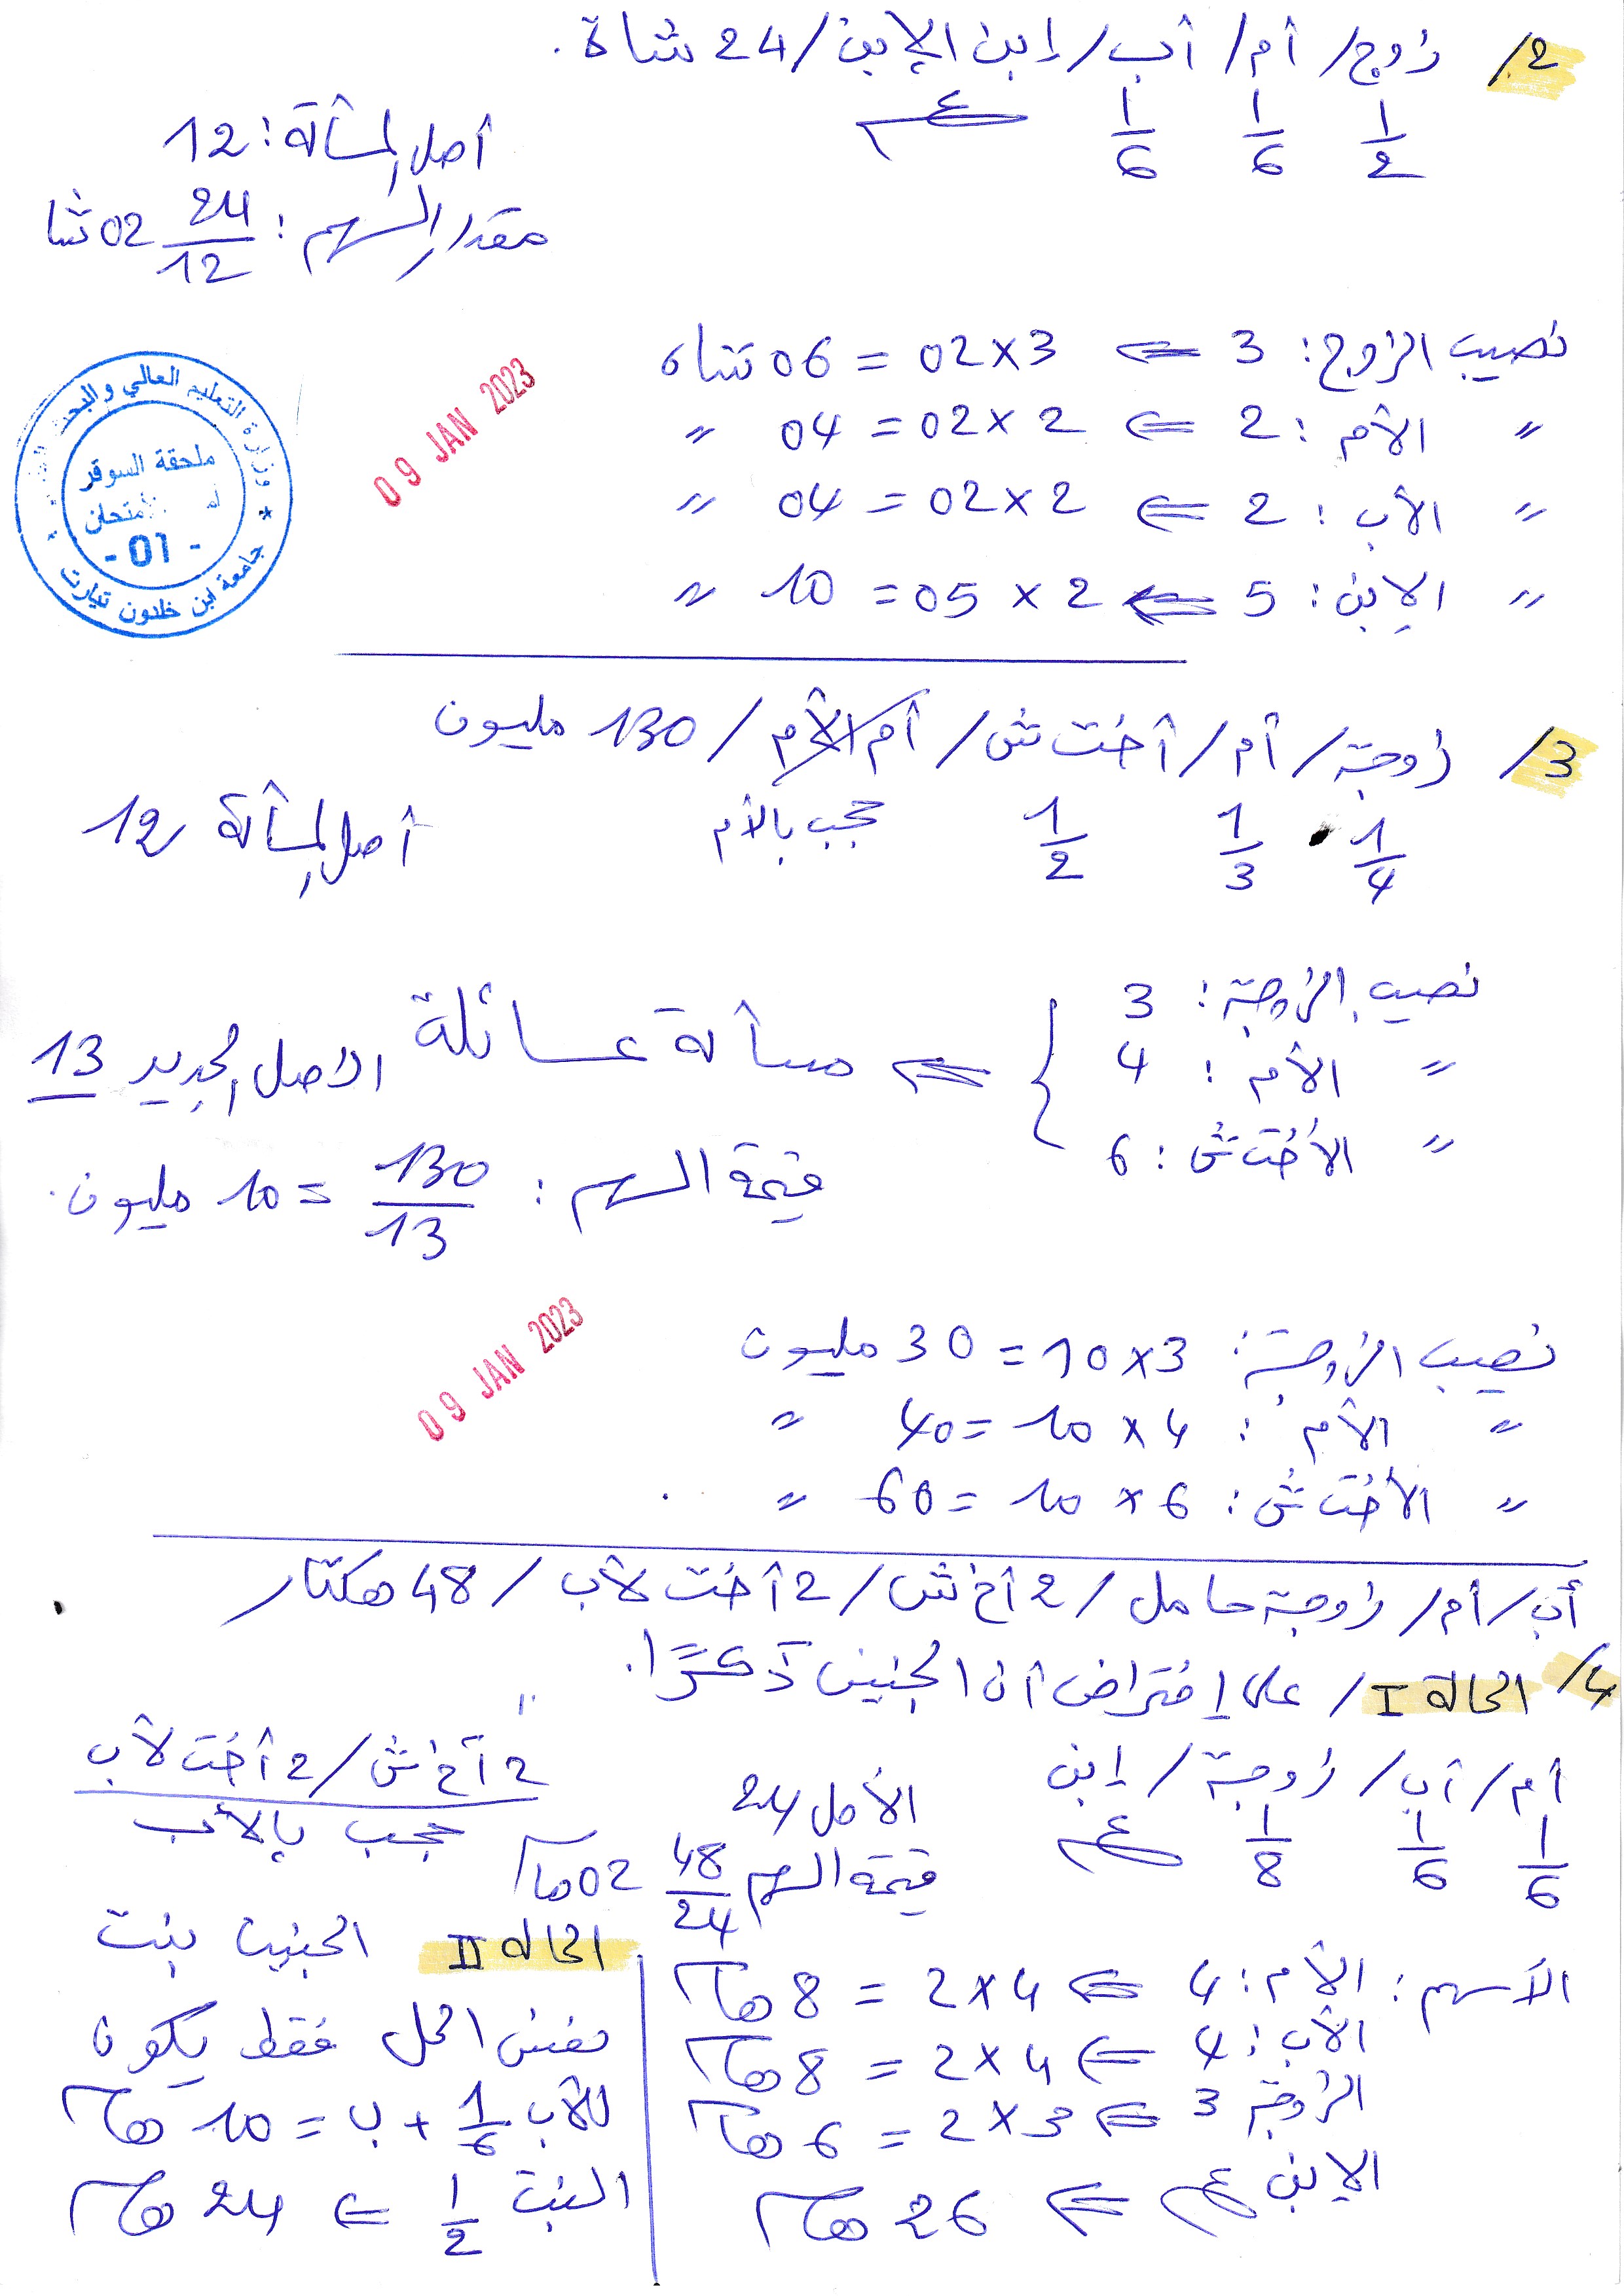 2/ زوج/ أم/ أب/ إبن الإبن/ 24 شاة.
1/2 1/6 1/6 ع
أصل المسألة: 12
مقدار السهم: 24/12 02 شا
نصيب الزوج: 3 ⇐ 3×02 = 06 شاه
〃 الأم: 2 ⇐ 2×02 = 04 〃
〃 الأب: 2 ⇐ 2×02 = 04 〃
〃 الإبن: 5 ⇐ 2×05 = 10 〃
وزارة التعليم العالي والبحث
ملحقة السوقر
- 01 -
جامعة ابن خلدون تيارت
09 JAN 2023
3/ زوجة/ أم/ أخت ش/ أم الأم/ 130 مليون
1/4 1/3 1/2 حجب بالأم
أصل المسألة 12
نصيب الزوجة: 3
〃 الأم: 4
〃 الأخت ش: 6
⇐ مسألة عائلة الأصل الجديد 13
قيمة السهم: 130/13 = 10 مليون.
09 JAN 2023
نصيب الزوجة: 3×10 = 30 مليون
〃 الأم: 4×10 = 40 〃
〃 الأخت ش: 6×10 = 60 〃
4/ أب/ أم/ زوجة حامل/ 2 أخ ش/ 2 أخت لأب/ 48 هكتار
الحالة I/ على إفتراض أن الجنين ذكرًا.
أم/ أب/ زوجة/ إبن
1/6 1/6 1/8 ع
2 أخ ش/ 2 أخت لأب
حجب بالأب
الأصل 24
قيمة السهم 48/24 02 هـ
الأسهم: الأم: 4 ⇐ 4×2 = 8 هـ
الأب: 4 ⇐ 4×2 = 8 هـ
الزوجة 3 ⇐ 3×2 = 6 هـ
الإبن ع ⇐ 26 هـ
الحالة II الجنين بنت
نفس الحل فقط يكون
للأب 1/6 + ب = 10 هـ
البنت 1/2 ⇐ 24 هـ